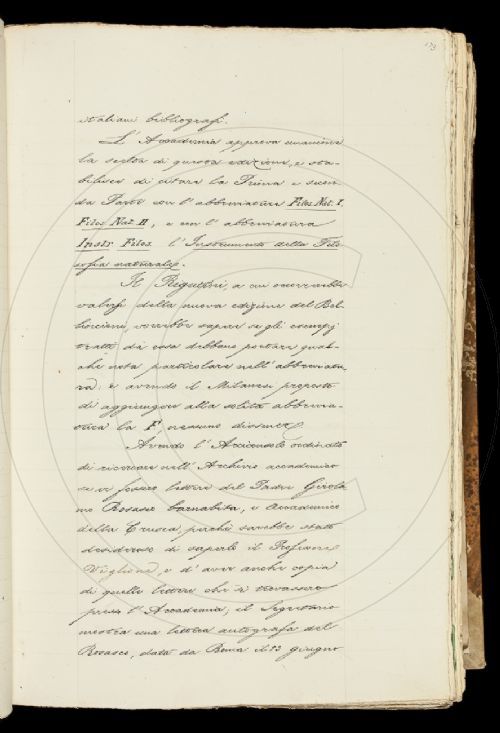 173
italiani bibliografi.
L'Accademia approva unanime
la scelta di questa edizione, e sta-
bilisce di citare la Prima e secon-
da Parte con l'abbreviatura Filos. Nat. I,
Filos. Nat. II, e con l'abbreviatura
Instr. Filos. l'Instrumento della Filo
sofia naturale.
Il Rigutini, a cui occorrerebbe
valersi della nuova edizione del Bel-
lincioni, vorrebbe sapere se gli esempj
tratti da essa debbano portare qual-
che nota particolare nell'abbreviatu-
ra; e avendo il Milanesi proposto
di aggiungere alla solita abbrevia-
tura la F, nessuno dissente.
Avendo l'Arciconsolo ordinato
di ricercare nell'Archivio accademico
se vi fossero lettere del Padre Girola
mo Rosasco barnabita, e Accademico
della Crusca, perché sarebbe stato
desideroso di saperlo il Professore
e d'aver anche copia
di quelle lettere che si trovassero
presso l'Accademia; il Segretario
mostra una lettera autografa del
Rosasco, data da Roma il 13 giugno